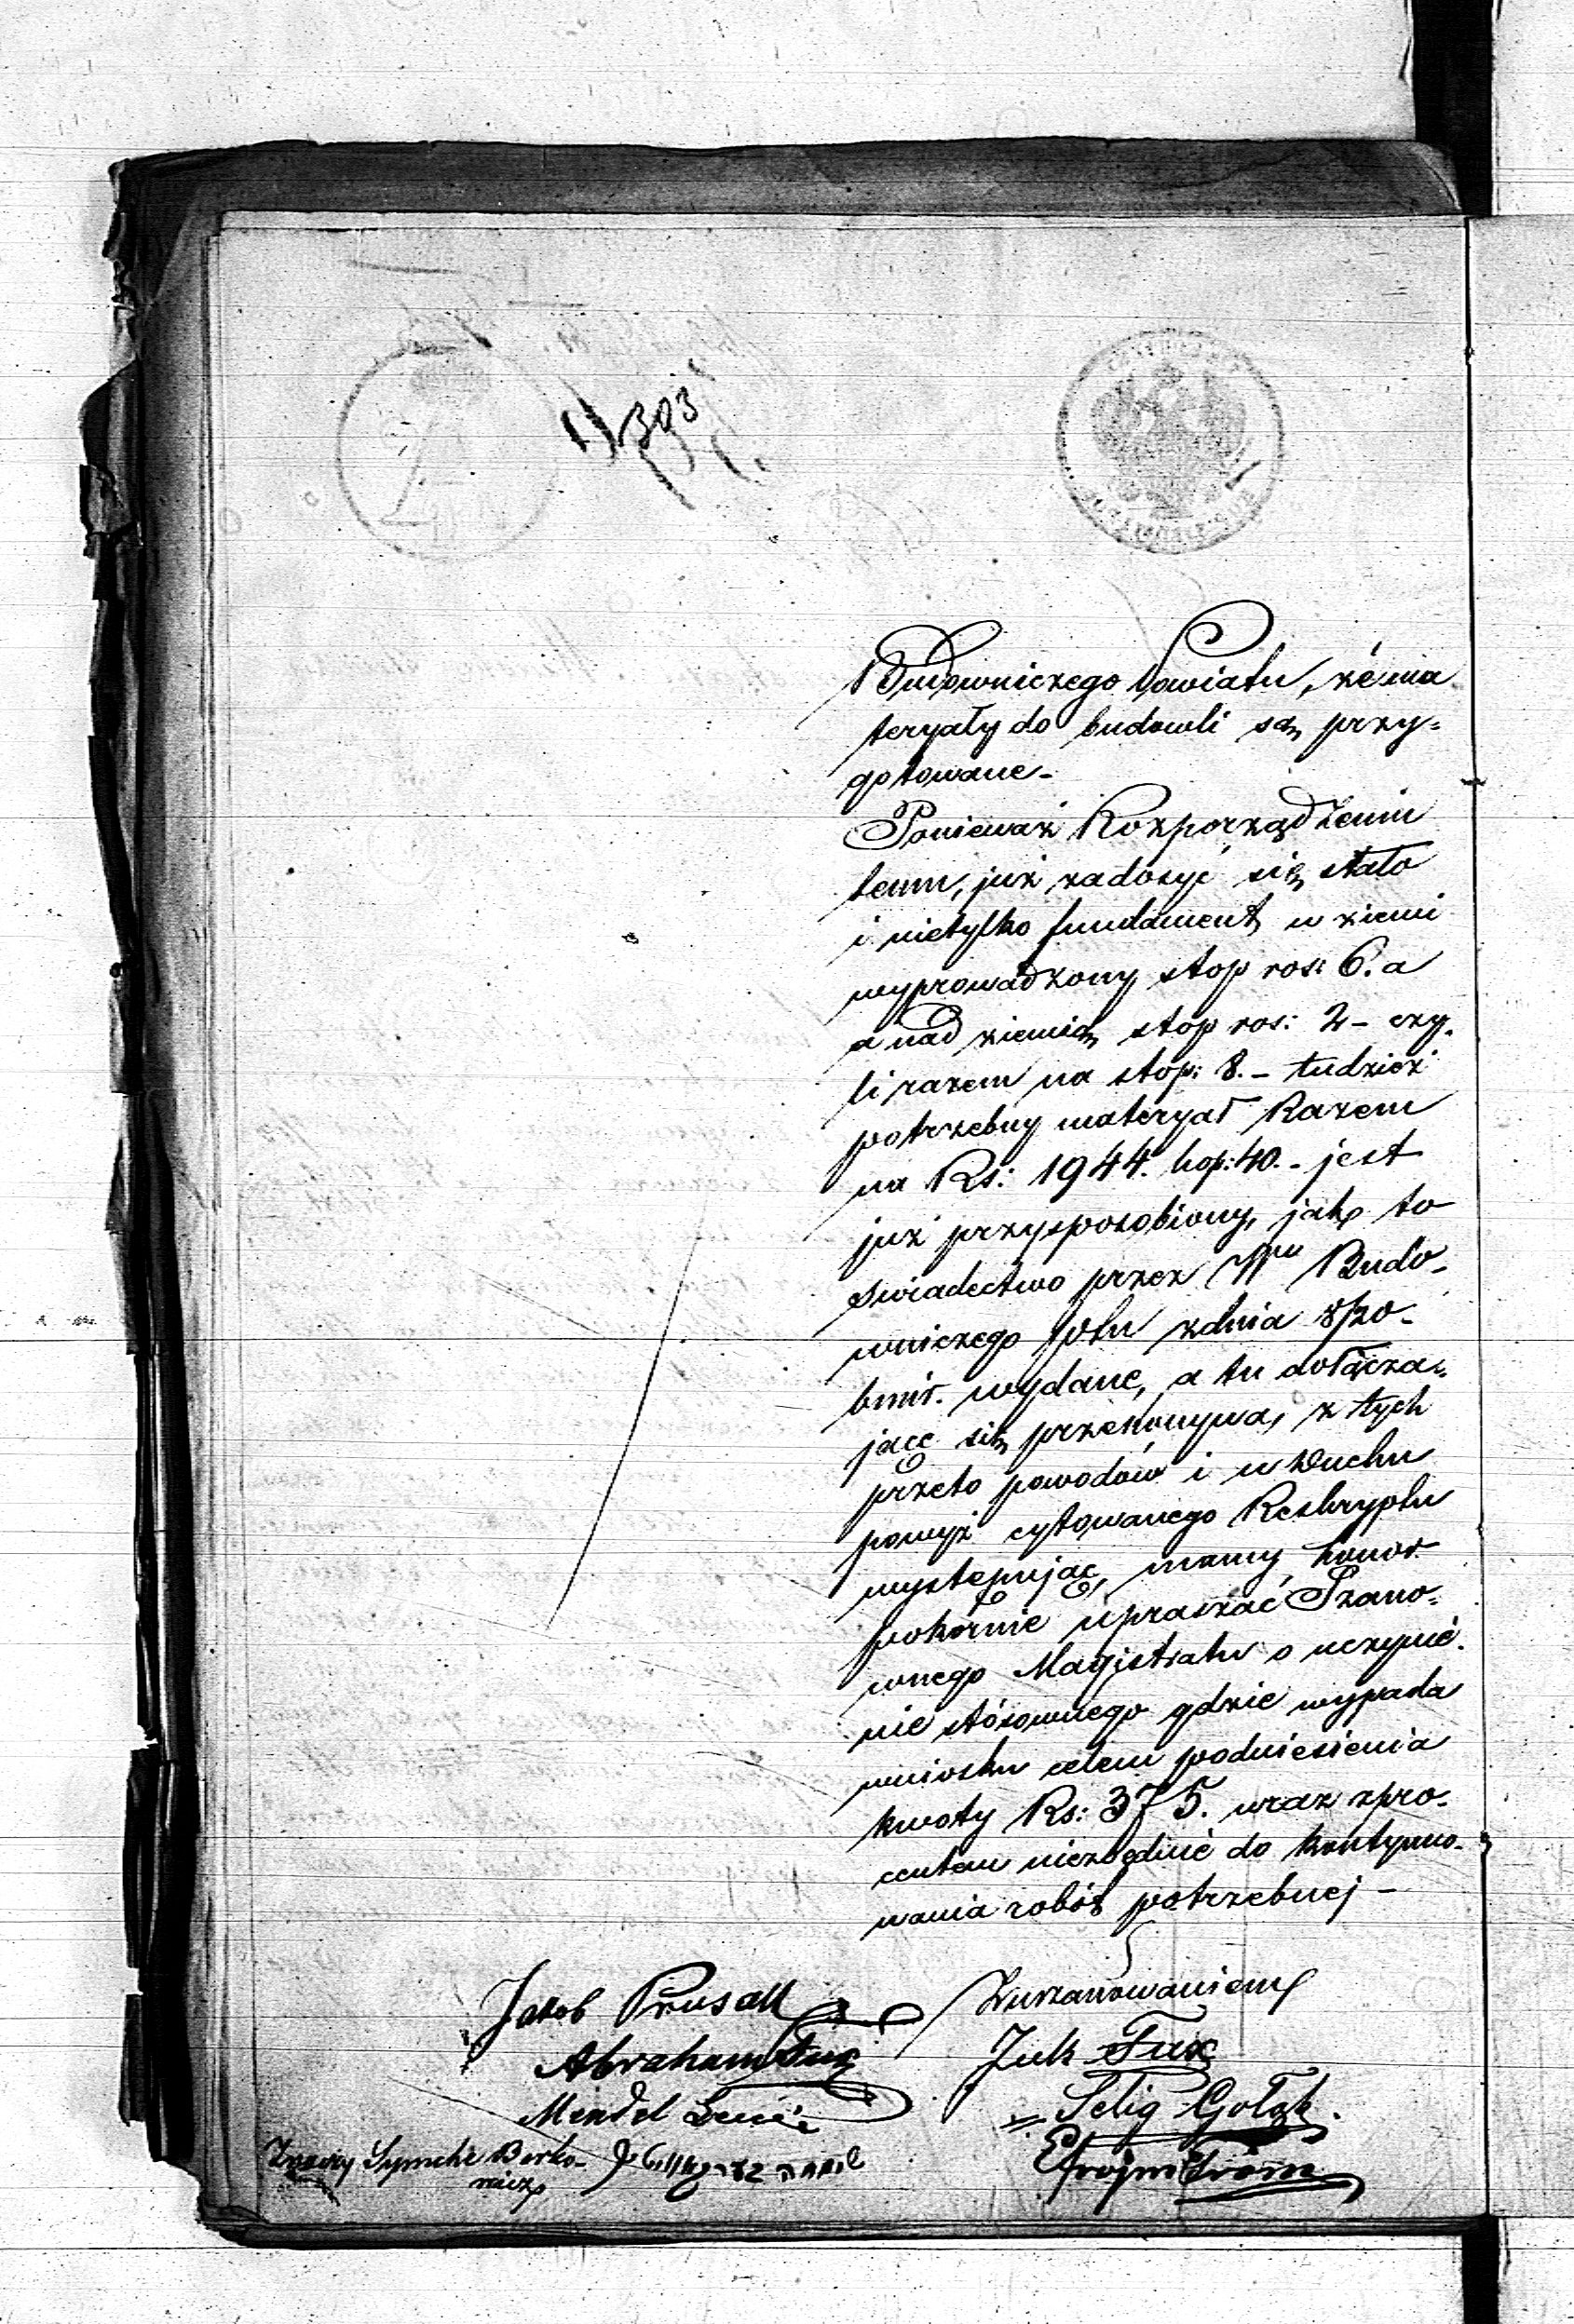 393
Budowniczego Powiatu, że ma
teryały do budowli są przy=
gotowane –
Ponieważ Rozporządzeniu
temu, już zadosyć się stało
i nietylko fundament w ziemi
wyprowadzony stop ros: 6. a
a nad ziemią stop ros: 2 – czy-
li razem na stop: 8. – tudzież
potrzebny materyał Razem
na Rs: 1944. kop: 40. – jest
już przysposobiony, jak to
swiadectwo przez Wgo Budo-
wniczego Ptu z dnia 8/20
bmir. wydane, a tu dołącza-
jące się przekonywa, z tych
przeto powodów i w duchu
powyż cytowanego Reskryptu
występując, mamy honor
pokornie upraszać Szano-
wnego Magistratu o uczynie-
nie stósownego gdzie wypada
wniosku celem podniesienia
kwoty Rs: 375. wraz z pro-
centem niezbędnie do kontynuo-
wania robót potrzebnej –
Z uszanowaniem
Jakob Prusak
Abraham Fux
Mendel
Symche Berko-
wicz
Fux
Selig Gołąb.